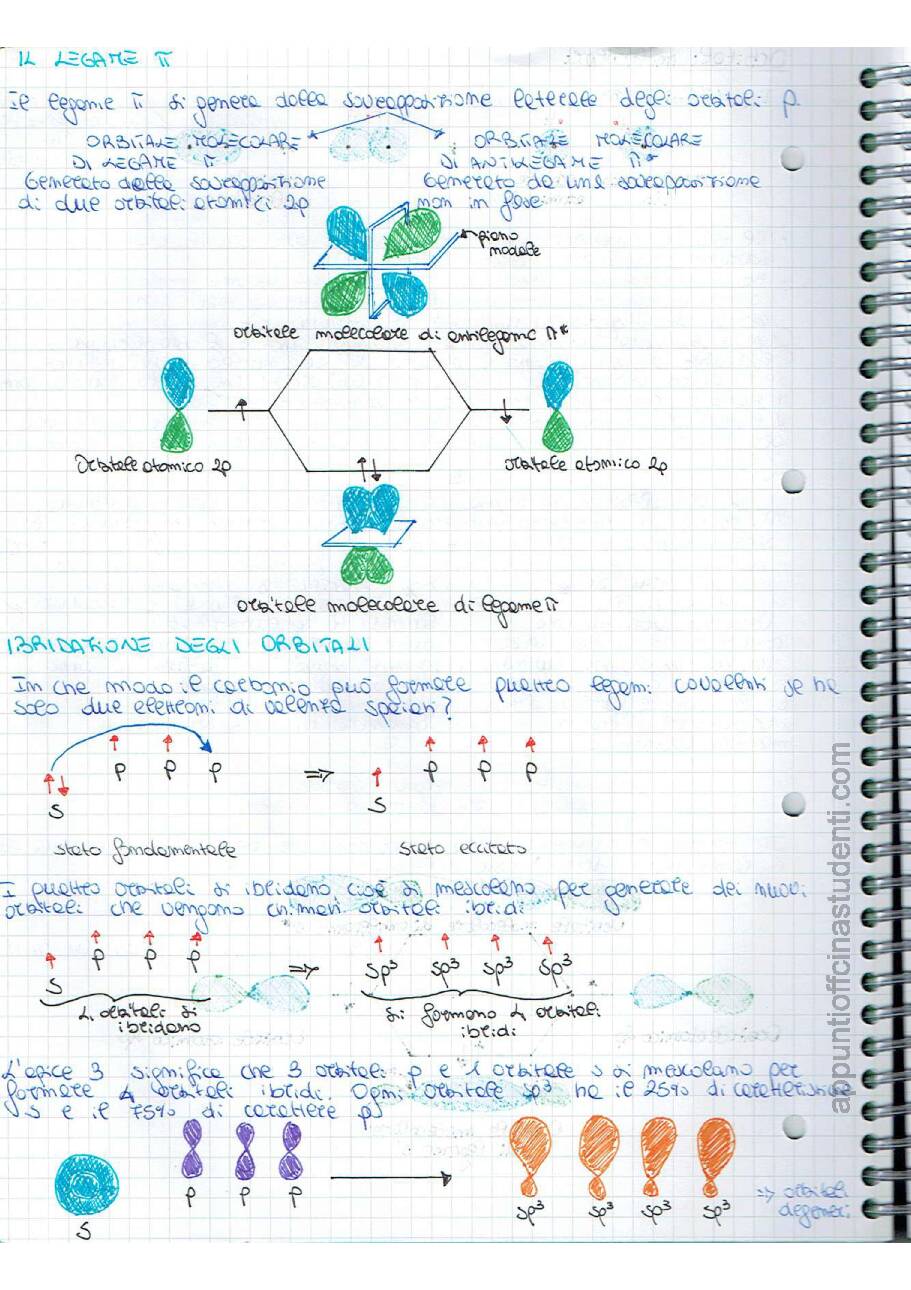 IL LEGAME π
Il legame π si genera dalla sovrapposizione laterale degli orbitali p
ORBITALE MOLECOLARE
DI LEGAME π
Generato dalla sovrapposizione
di due orbitali atomici 2p
ORBITALE MOLECOLARE
DI ANTILEGAME π*
Generato da una sovrapposizione
non in fase
piano
nodale
orbitale molecolare di antilegame π*
Orbitale atomico 2p
orbitale atomico 2p
orbitale molecolare di legame π
IBRIDAZIONE DEGLI ORBITALI
In che modo il carbonio può formare quattro legami covalenti se ha
solo due elettroni di valenza spaiati?
S p p p ⇒ S p p p
stato fondamentale
stato eccitato
I quattro orbitali si ibridano cioè si mescolano per generare dei nuovi
orbitali che vengono chiamati orbitali ibridi
S p p p ⇒ sp³ sp³ sp³ sp³
4 orbitali si
ibridano
si formano 4 orbitali
ibridi
L'apice 3 significa che 3 orbitali p e 1 orbitale s si mescolano per
formare 4 orbitali ibridi. Ogni orbitale sp³ ha il 25% di
s e il 75% di carattere p
S p p p sp³ sp³ sp³ sp³
⇒ orbitali
degeneri
appuntioffcinastudenti.com